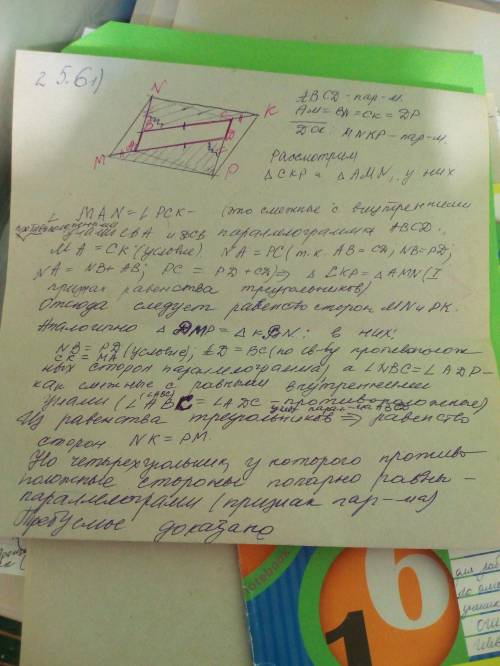 25.61)
N
K
M
P
B
C
A
D
ABCD - пар-м.
AM = BN = CK = DP
Док: MNKP - пар-м.
Рассмотрим
△CKP и △AMN, у них
∠ MAN = ∠ PCK - (это смежные с внутренними
противоположными
углами DBA и DCB параллелограмма ABCD.
MA = CK (условие). NA = PC (т.к. AB = CD, NB = PD;
NA = NB + AB; PC = PD + CD) ⇒ △ CKP = △AMN (I
признак равенства треугольников)
Отсюда следует равенство сторон MN и PK.
Аналогично △ DMP = △ KBN: в них:
NB = PD (условие); AD = BC (по св-ву противополож
CK = MA
ных сторон параллелограмма), а ∠NBC = ∠ADP -
как смежные с равными внутренними
углами (∠ ABC = ∠ ADC - противоположные)
углы пар-ма ABCD
Из равенства треугольников ⇒ равенство
сторон NK = PM.
Но четырехугольник, у которого противо
положные стороны попарно равны -
параллелограмм (признак пар-ма)
Требуемое доказано
notebook
1
6